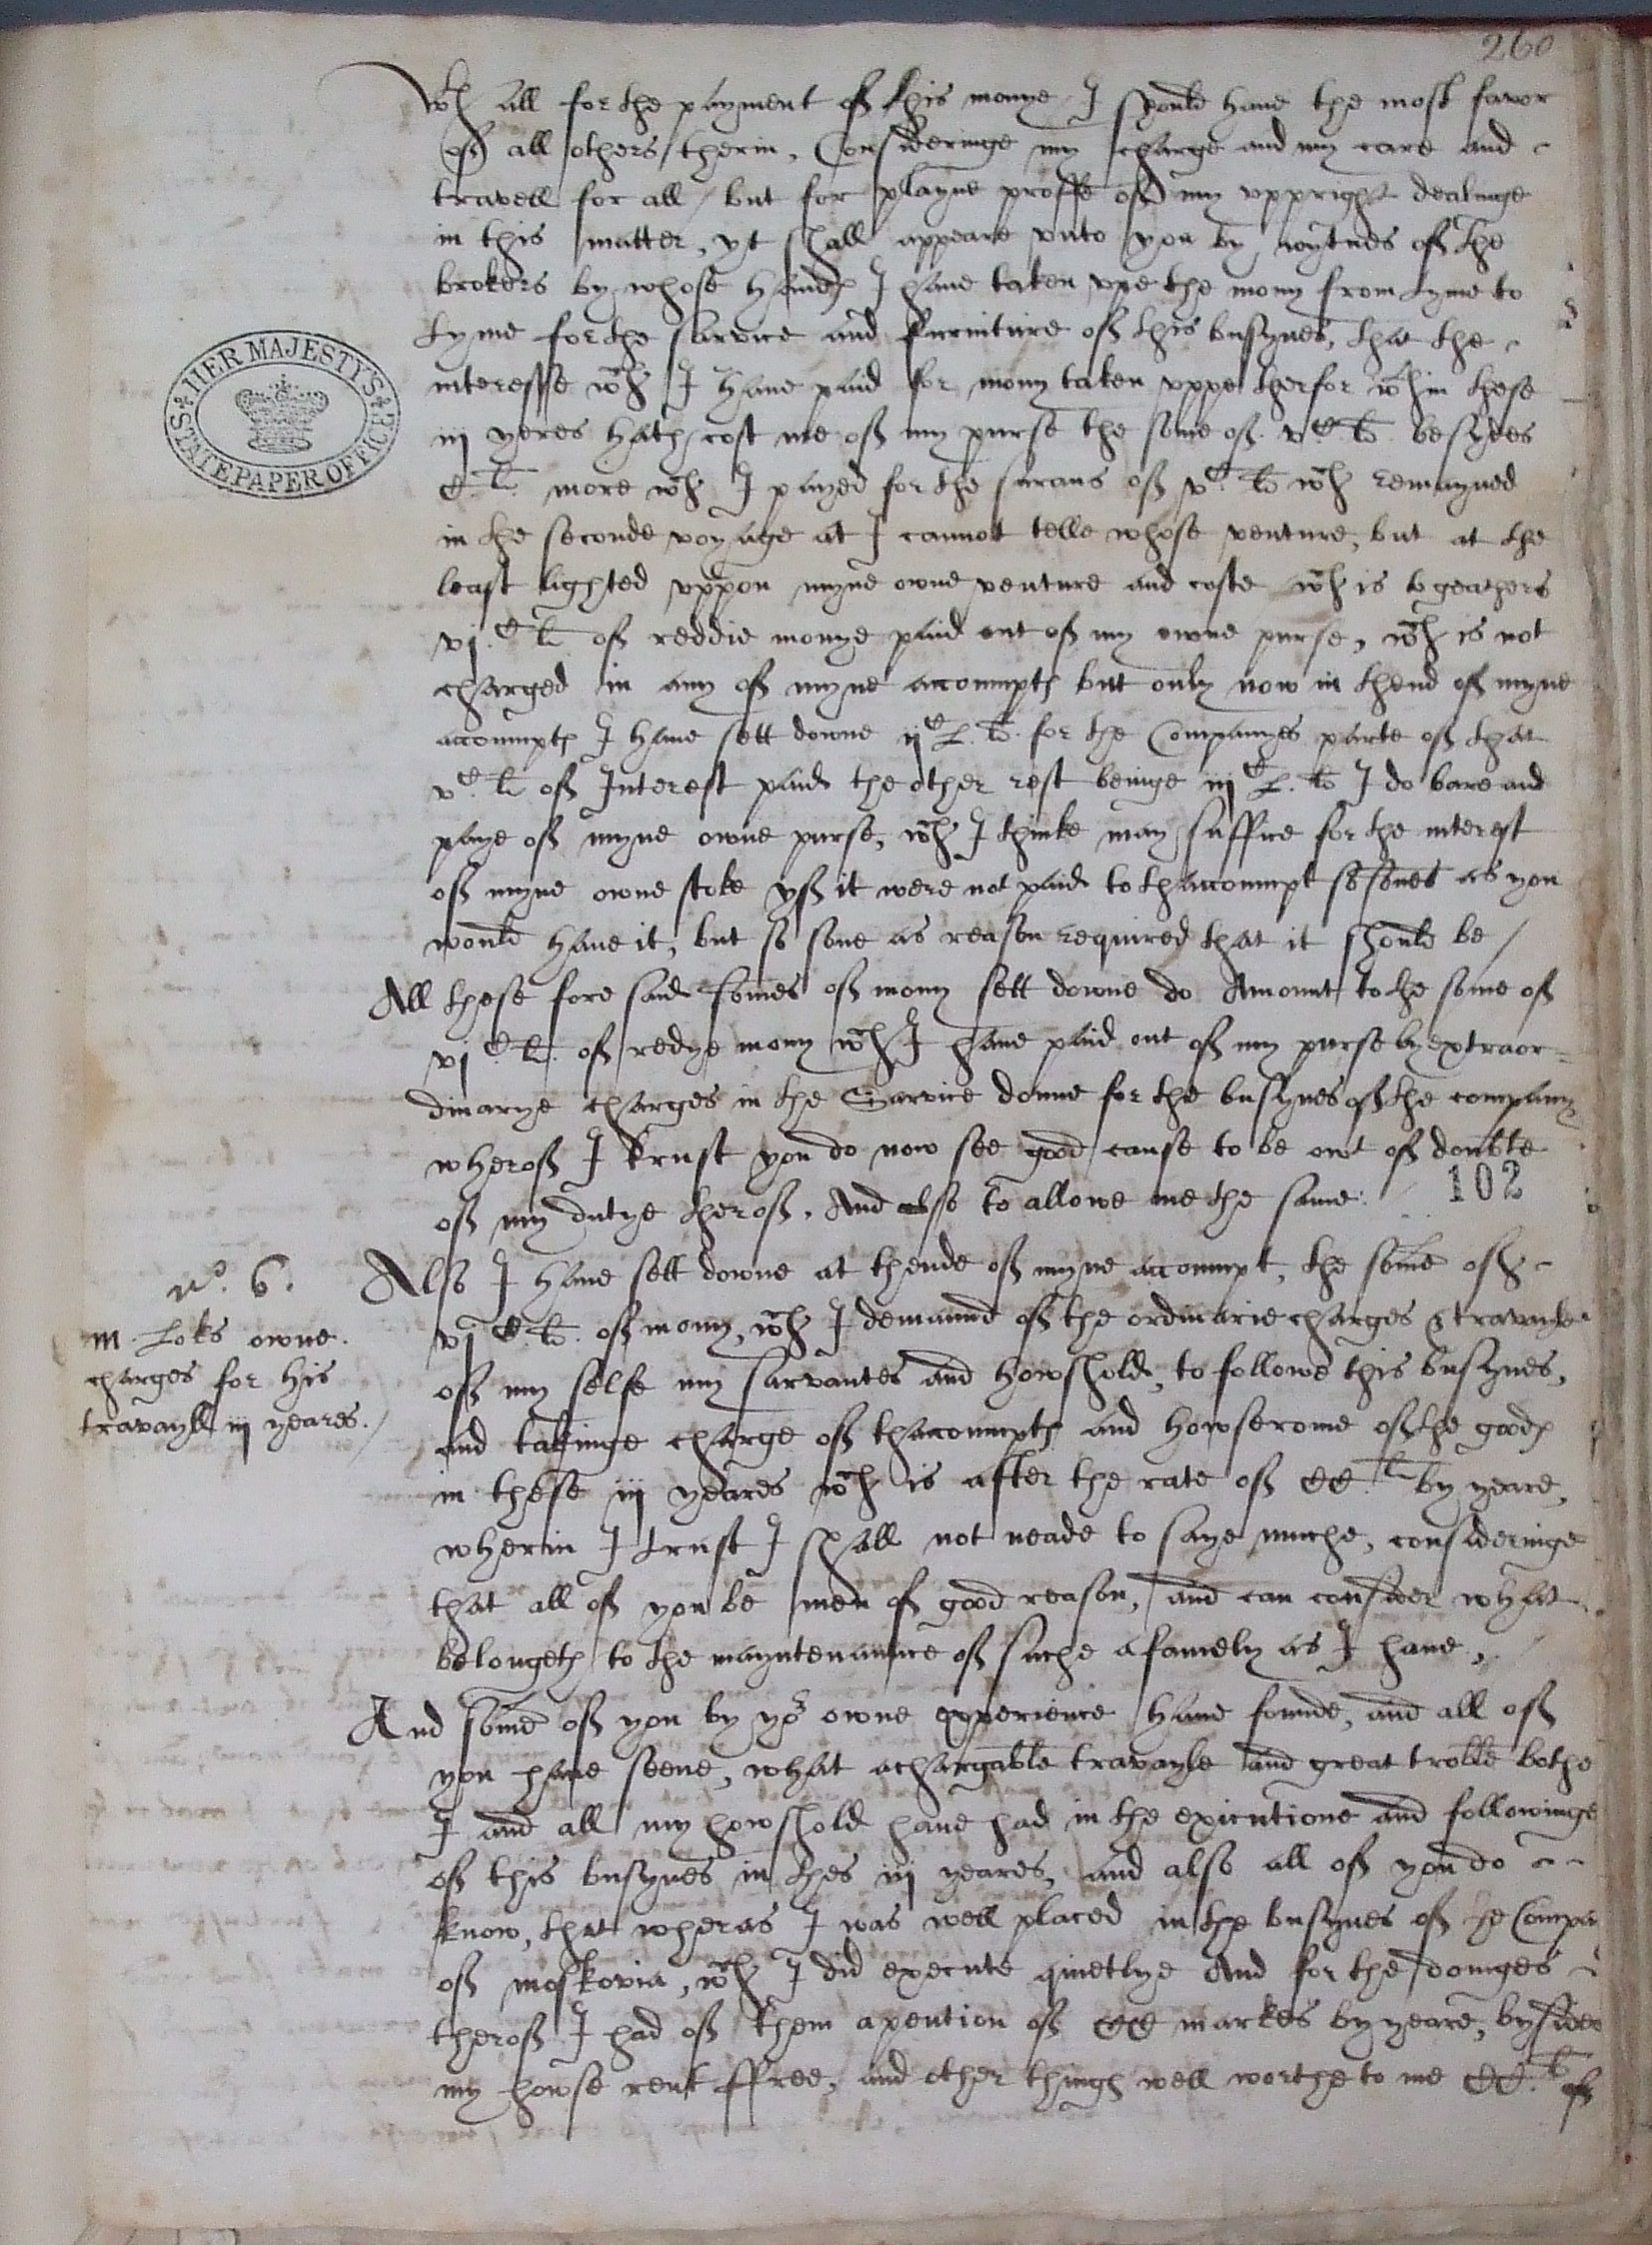 260
wch all for the payment of this monye I should have the most favor
of all others / therin, Consideringe my charge and my care and
travell for all / but for playne proffe of my vppright dealinge
in this matter, yt shall appeare vnto you by wytnes of the
brokers by whose handes I have taken vpe the mony from tyme to
tyme for the sarvice and furniture of this busynes, that the
interesse wch I have paid for mony taken vppe therfor wthin these
iij yeres hath cost me of my purse the some of vC li. besydes
C. li. more wch I payed for the surans of vC. li wch remayned
in the seconde voyage at I cannot telle whose venture, but at the
least lighted vppon myne owne venture and coste wch is togeathers
vj.C li of reddie monye paid out of my owne purse, wch is not
charged in any of myne accompts but only now in thend of myne
accompts I have sett downe ijC L. li. for the Companyes parte of that
vC. li of Interest paid the other rest beinge iijC L. li I do bare and
paye of myne owne purse, wch I thinke may suffice for the interest
of myne owne stoke yf it were not paid to thaccompt so sone as you
would have it, but so sone as reason required that it should be /
All these fore said somes of mony sett downe do Amount to the some of
vj C. li. of redye mony wch I have paid out of my purse by extraor=
dinarye charges in the Sarvice donne for the busynes of the company
wherof I trust you do now see good cause to be owt of doubte
of my dutye therof. And also to allowe me the same.
102
HER MAJESTY'S
STATE PAPER OFFICE
No. 6.
m. Loks owne.
charges for his
travayll iij yeares. /
Also I have sett downe at thende of myne accompt, the some of
vj C. li. of mony, wch I demaund of the ordinarie charges & travayle
of my selfe my sarvantes and howshold, to followe this busynes,
and takinge charge of thaccompts and howserome of the goodes
in these iij yeares wch is after the rate of CC. li by yeare,
wherin I trust I shall not neade to saye muche, consideringe
that all of you be men of good reason, and can consider what
belongeth to the mayntenaunce of suche a famely as I have,
And some of you by yor owne experience have founde, and all of
you have seene, what a chargable travayle and great troble bothe
I and all my howshold have had in the exicutione and followinge
of this busynes in thes iij yeares, and also all of you do
know, that wheras I was well placed in the busynes of the Compa
of moskovia, wch I did execute quietlye And for the doinges
therof I had of them a pention of CCCC markes by yeare, bysides
my howse rent ffree, and other things well worthe to me CC. li of